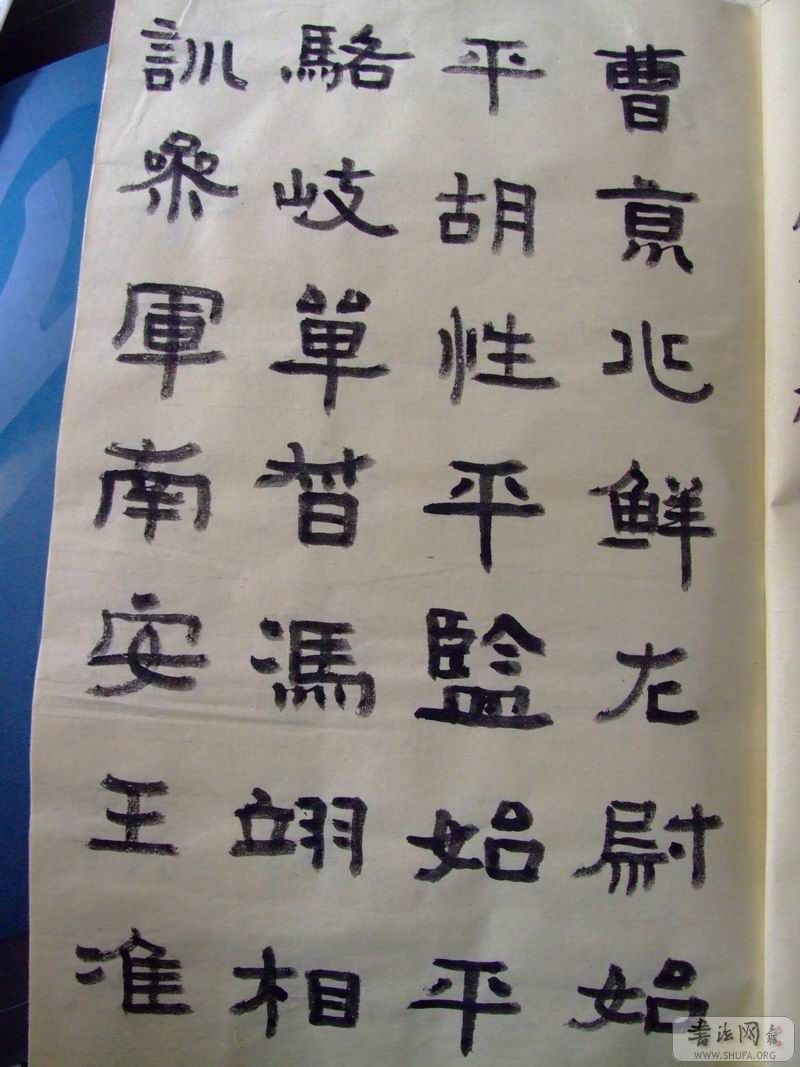 曹京兆鮮尢尉始
平胡性平監始平
駱岐單督馮翊相
訓叅軍南安王准
書法网
WWW.SHUFA.ORG